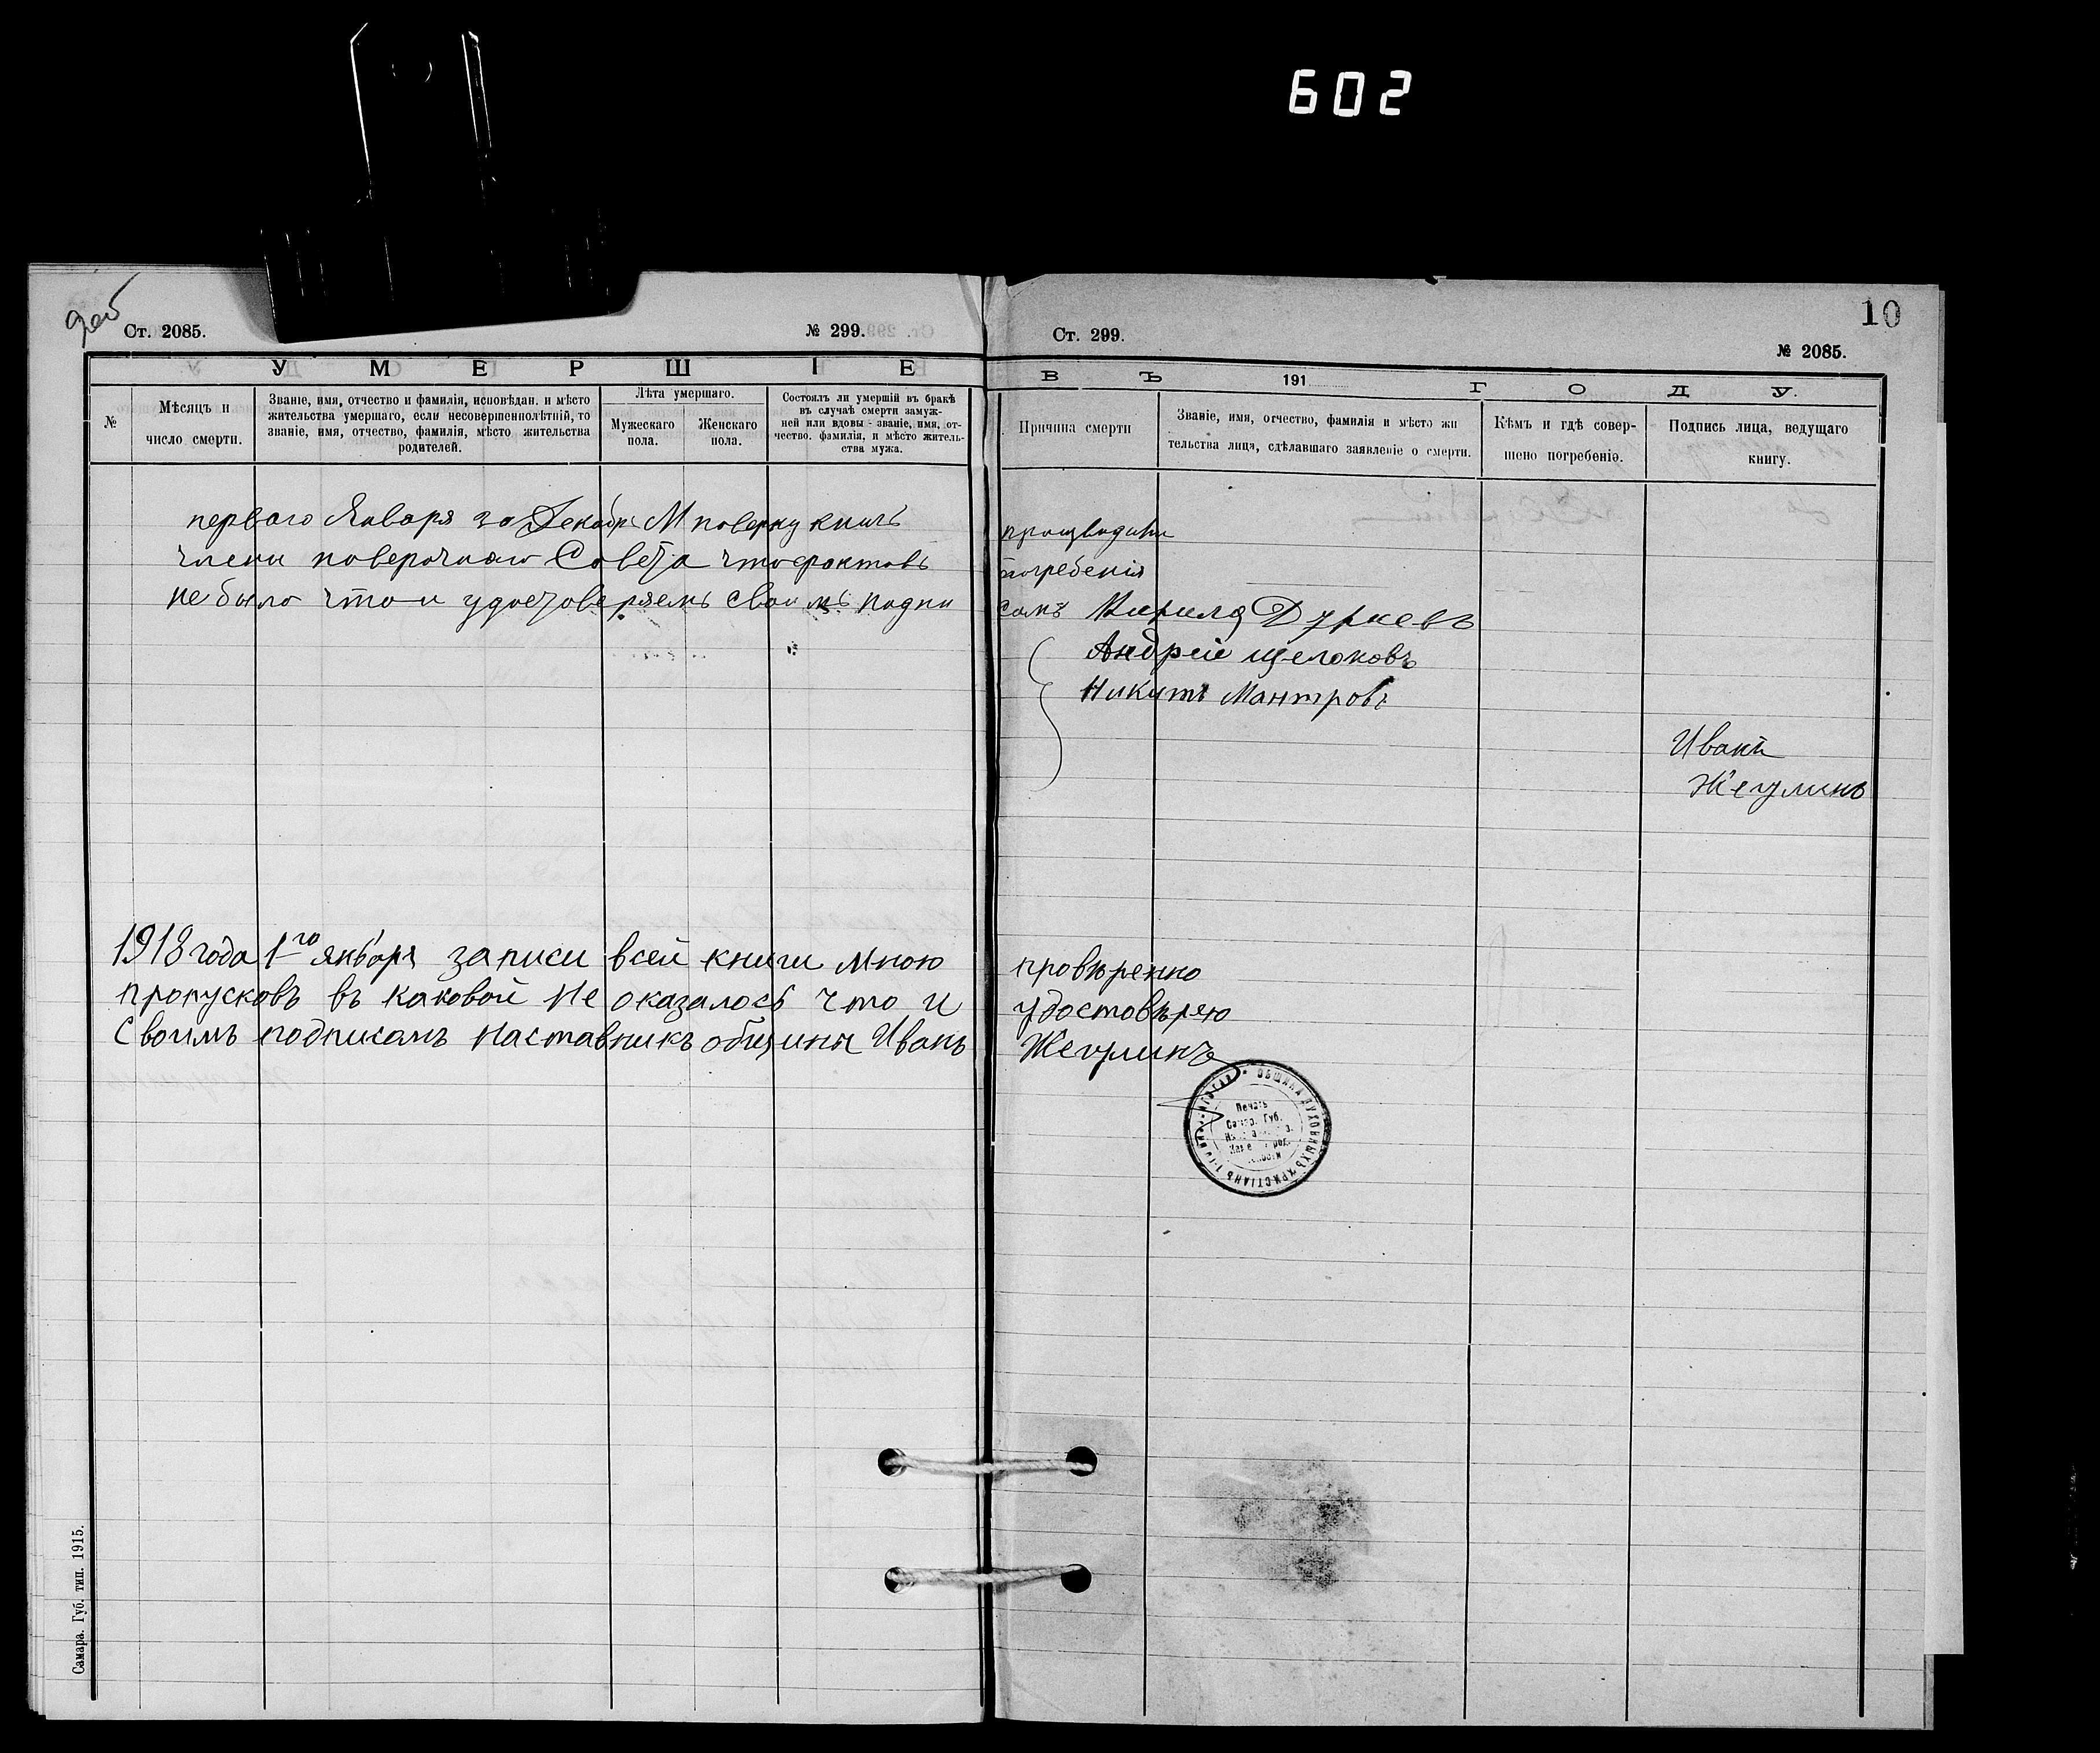 602
10
Ст. 2085.
№ 299.
Ст. 299.
№ 2085.
УМЕРШІЕ
ВЪ 191 ГОДУ.
№
Мѣсяцъ и
число смерти.
Званіе, имя, отчество и фамилія, исповѣдан. и мѣсто
жительства умершаго, если несовершеннолѣтній, то
званіе, имя, отчество, фамилія, мѣсто жительства
родителей.
Лѣта умершаго.
Мужескаго
пола.
Женскаго
пола.
Состоялъ ли умершій въ бракѣ
въ случаѣ смерти замуж-
ней или вдовы - званіе, имя, от-
чество, фамилія, и мѣсто житель-
ства мужа.
Причина смерти
Званіе, имя, отчество, фамилія и мѣсто жи
тельства лица, сдѣлавшаго заявленіе о смерти.
Кѣмъ и гдѣ совер-
шено погребеніе.
Подпись лица, ведущаго
книгу.
перваго Января за Декабрь М поверку книгъ производили
члены поверочнаго Совета что фактовъ погребенія
не было что и удостоверяемъ своимъ подпи самъ Кирила Дурневъ
Андрей Щелоковъ
Никитъ Мантровъ
Иванъ
Жегулинъ
1918 года 1го января записи всей книги мною провѣренно
пропусковъ въ каковой не оказалось что и удостовѣрею
Своимъ подписамъ наставникъ общины Иванъ Жегулинъ
ОБЩИНА ДУХОВНЫХЪ ХРИСТІАНЪ
Печать
Губ.
Самара. Губ. тип. 1915.